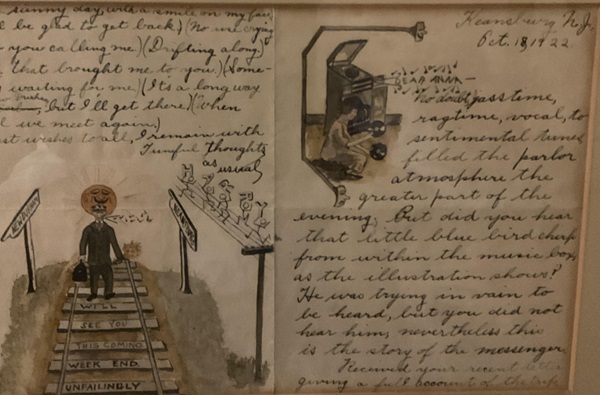 sunny day, with a smile on my face
'll be glad to get back) (No use crying
you calling me) (Drifting along)
that brought me to you) (Some-
waiting for me) (Its a long way
, but I'll get there) (When
l we meet again)
st wishes to all, I remain with
Tuneful thoughts
as usual
Roy
WILL
SEE YOU
THIS COMING
WEEK END
UNFAILINGLY
Keansburg N.J.
Oct. 18, 1922
DEAR ANNA —
No doubt pass time,
ragtime, vocal, to
sentimental tunes
filled the parlor
atmosphere the
greater part of the
evening, But did you hear
that little blue bird chirp
from within the music box
as the illustration shows?
He was trying in vain to
be heard, but you did not
hear him, nevertheless this
is the story of the messenger
Received your recent letter
giving a full account of the